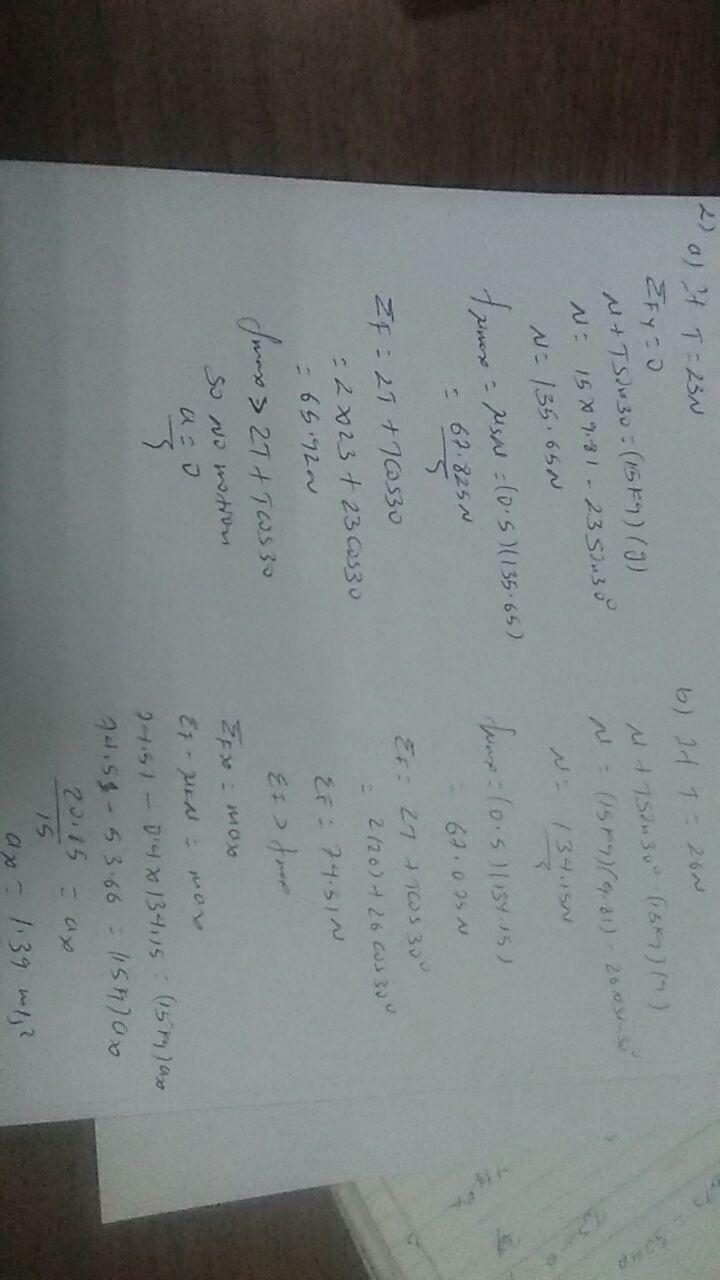 2) a) If T = 23N
ΣFy = 0
N + T sin30 = (15kg)(g)
N = 15 x 9.81 - 23 sin30°
N = 135.65N
fsmax = μsN = (0.5)(135.65)
= 67.825N
ΣF = 2T + Tcos30
= 2x23 + 23cos30
= 65.92N
fmax > 2T + Tcos30
so no motion
a = 0
b) If T = 26N
N + Tsin30° = (15kg)(g)
N = (15kg)(9.81) - 26 sin30°
N = 134.15N
fmax = (0.5)(134.15)
= 67.075N
ΣF = 2T + Tcos30°
= 2(26) + 26cos30°
ΣF = 74.51N
ΣF > fmax
ΣFx = max
ΣF - μkN = max
74.51 - 0.4 x 134.15 = (15kg)ax
74.51 - 53.66 = (15kg)ax
20.85 = ax
15
ax = 1.39 m/s²